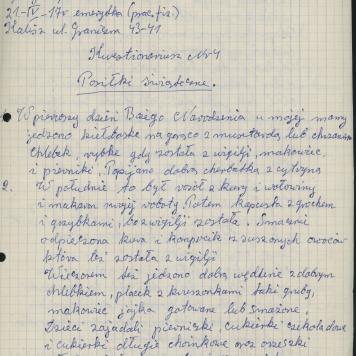 21-IV-17r emerytka (prac. fiz.)
Kalisz ul. Granitem 43-41
Kwestionariusz Nr 4
Posiłki świąteczne.
1. W pierwszy dzień Bożego Narodzenia u mojej mamy
jedzono kiełbaskę na gorąco z musztardą lub chrzanem
chlebek, rybkę gdy została z wigilji, makowiec
i pierniki. Popijano dobrą cherbatką z cytryną
2. W południe to był rosół z kury i wołowiny
i makaron mojej roboty. Potem kapusta z grochem
i grzybkami, bo z wigilji została. Smacznie
odpieczona kura i kompocik z suszonych owoców
która bo została z wigilji
Wieczorem też jedzono dobrą wędlinę z dobrym
chlebkiem, placek z kruszonkami taki gruby,
makowiec jajka gotowane lub smażone.
Dzieci zajadali pierniczki, cukierki czekoladowe
i cukierki długie choinkowe oraz orzeszki